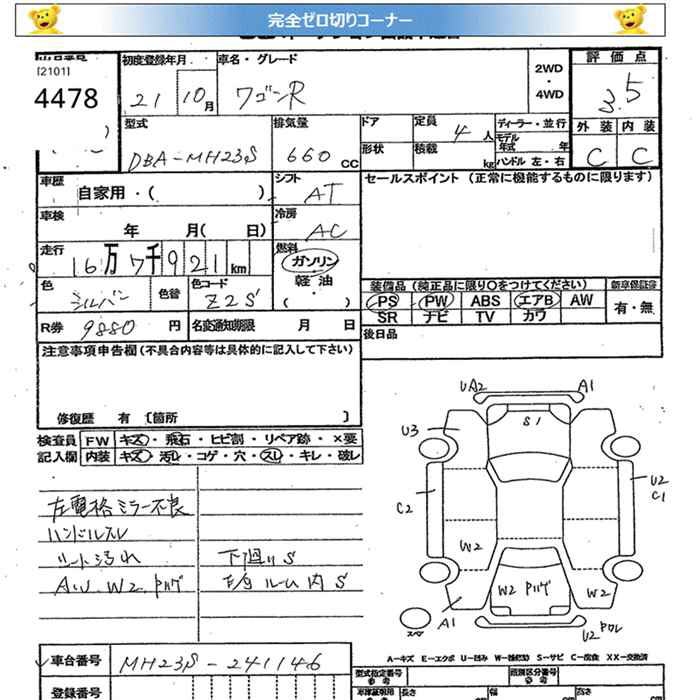 完全ゼロ切りコーナー
[2101]
4478
初度登録年月
21 10月
車名・グレード
ワゴンR
2WD
・
4WD
評価点
3.5
型式
DBA-MH23S
排気量
660 cc
ドア
形状
定員 4 人
積載 kg
ディーラー・並行
モデル年式 年
ハンドル 左・右
外装 内装
C C
車歴
自家用・( )
シフト
AT
車検
年 月( 日)
冷房
AC
走行
16万7千921km
燃料
ガソリン
軽油
( )
色
シルバー
色替
色コード
Z2S
R券 9880 円
名変通知期限 月 日
セールスポイント (正常に機能するものに限ります)
装備品 (純正品に限り○をつけてください)
新車保証書
PS PW ABS エアB AW
SR ナビ TV カワ
有・無
後日品
注意事項申告欄(不具合内容等は具体的に記入して下さい)
修復歴 有 [箇所 ]
検査員
記入欄
FW キズ・飛石・ヒビ割・リペア跡・×要
内装 キズ・汚レ・コゲ・穴・スレ・キレ・破レ
左電格ミラー不良
ハンドルスレ
シート汚れ
下廻りS
UA2
A1
S1
U3
C2
U2
C1
W2
W2
W2
A1
U2
スペア
車台番号
MH23S-241146
登録番号
A-キズ E-エクボ U-凹み W-補修跡 S-サビ C-腐食 XX-交換済
型式指定番号
参考
類別区分番号
参考
長さ
幅
高さ